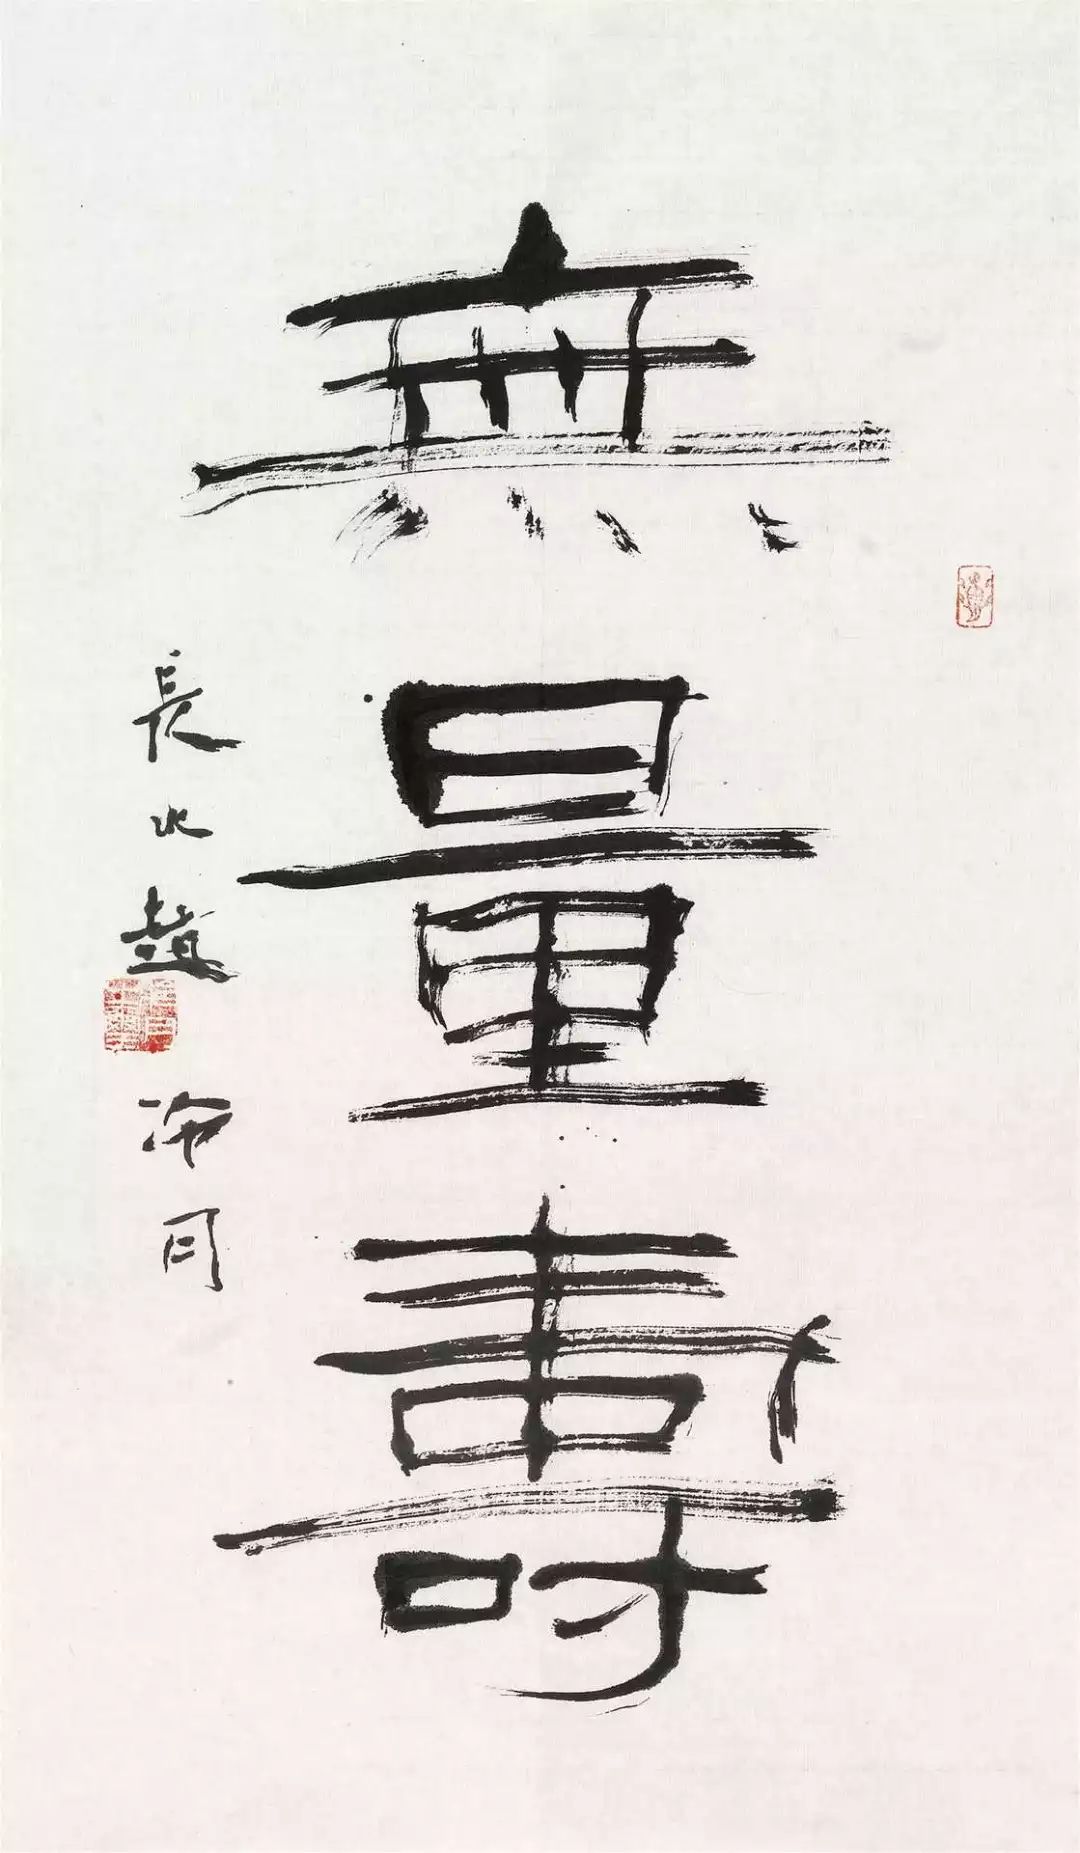 無量壽
長沙趙冷月